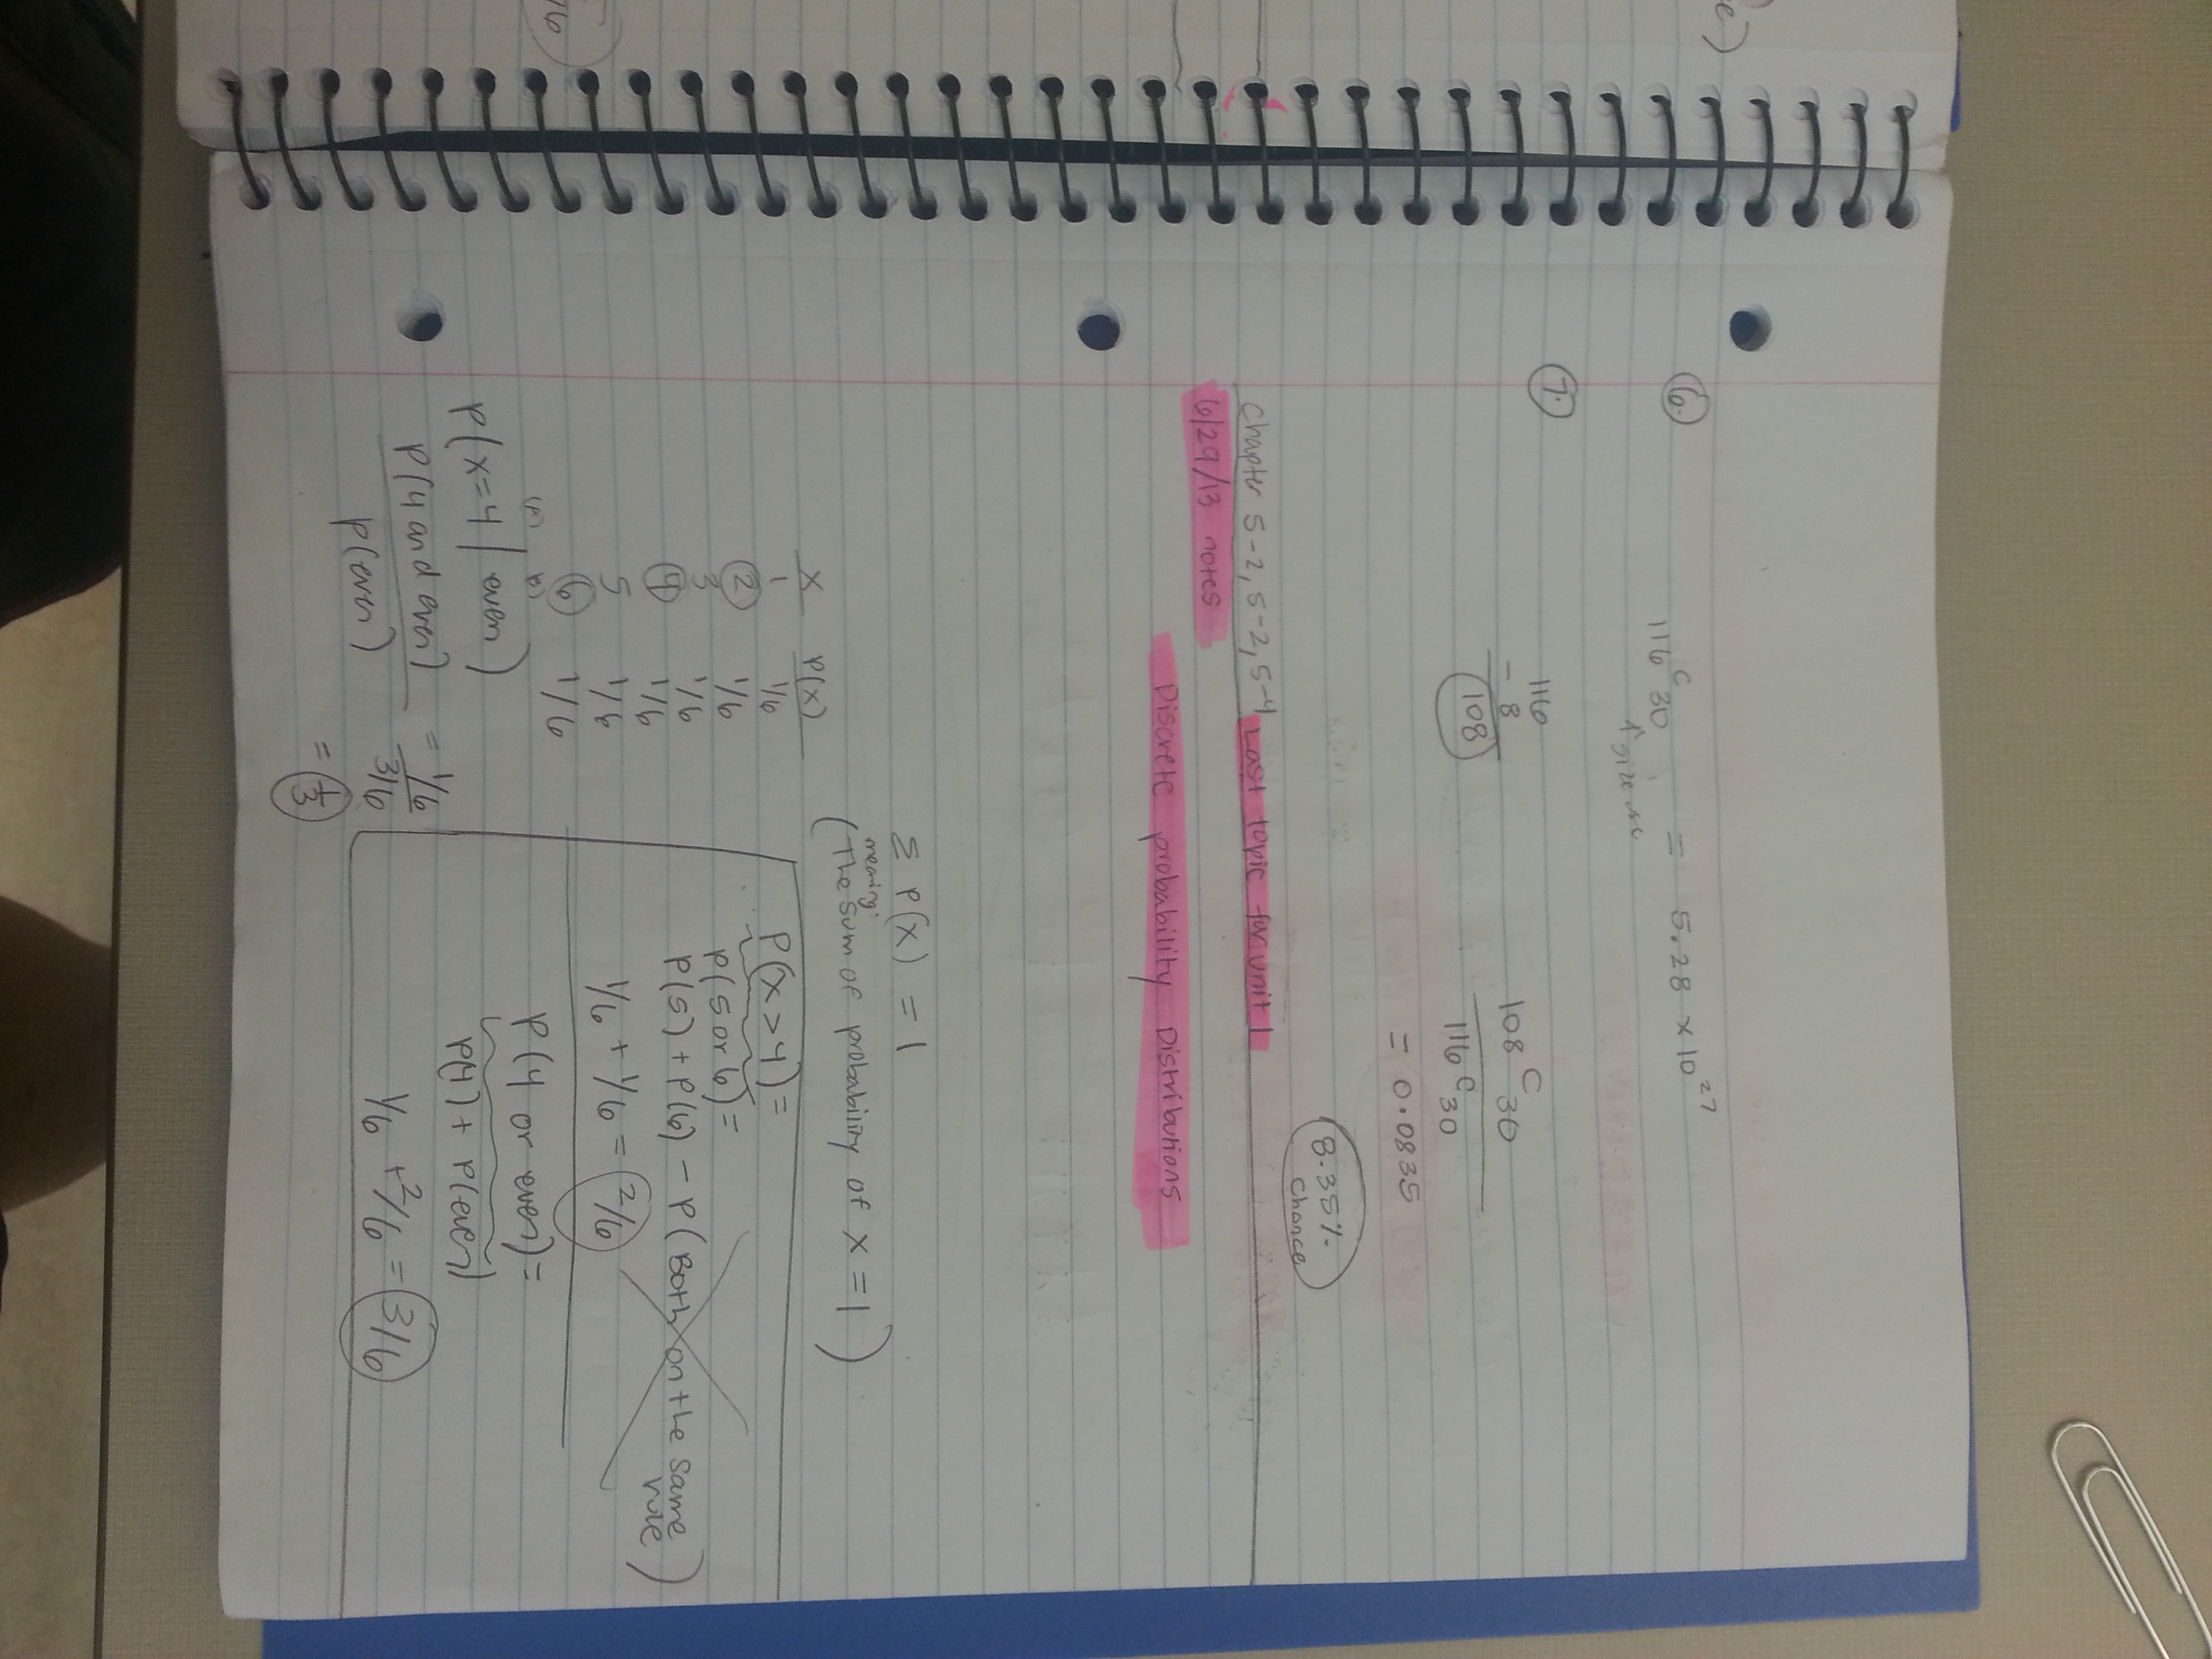 6.
116 C 30 = 5.28 x 10^27
↑ size
7.
116
- 8
108
108 C 30
116 C 30
= 0.0835
8.35% chance
Chapter 5-2, 5-2, 5-4 Last topic for unit 1
6/29/13 notes
Discrete probability Distributions
Σ P(x) = 1
meaning:
(The sum of probability of x = 1)
x P(x)
1 1/6
2 1/6
3 1/6
4 1/6
5 1/6
6 1/6
P(x>4) =
P(5 or 6) =
P(5) + P(6) - P(Both on the same
1/6 + 1/6 = 2/6
P(x=4 | even)
P(4 and even)
P(even)
= 1/6
3/6
= 1/3
P(4 or even) =
P(4) + P(even)
1/6 + 2/6 = 3/6